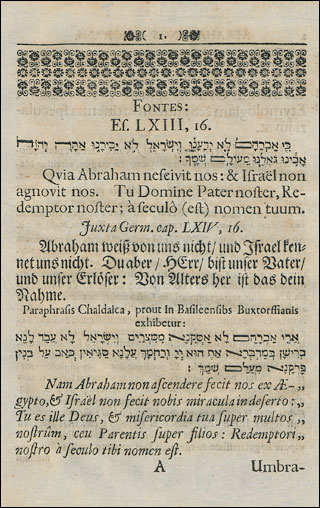 ( 1. )
FONTES:
Eſ. LXIII, 16.
כִּי אַבְרָהָם לֹא יְדָעָנוּ וְיִשְׂרָאֵל לֹא יַכִּירָנוּ אַתָּה יְהוָֹה
אָבִינוּ גֹּאֲלֵנוּ מֵעוֹלָם שְׁמֶךָ׃
Qvia Abraham neſeivit nos: & Iſraël non
agnovit nos. Tu Domine Pater noſter, Re-
demptor noſter; à ſeculò (est) nomen tuum.
Juxta Germ. cap. LXIV, 16.
Abraham weiß von uns nicht/ und Iſrael ken-
net uns nicht. Du aber/ HErr/ biſt unſer Vater/
und unſer Erlöſer: Von Alters her iſt das dein
Nahme.
Paraphraſis Chaldaica, prout in Baſileenſibs Buxtorffianis
exhibetur:
אֲרֵי אַבְרָהָם לָא אַסְקָנָא מִמִּצְרַיִם וְיִשְׂרָאֵל לָא עֲבַד לָנָא
פְּרִישָׁן בְּמַדְבְּרָא אַתְּ הוּא יְיָ וְרַחֲמָךְ עֲלָנָא סַגִּיאִין כְּאַב עַל בְּנִין
פָּרְקָנָא מֵעָלַם שְׁמָךְ׃
Nam Abraham non aſcendere fecit nos ex Æ-„
gypto, & Iſraël non fecit nobis miracula in deſerto:„
Tu es ille Deus, & miſericordia tua ſuper multos„
noſtrûm, ceu Parentis ſuper filios: Redemptori„
noſtro à ſeculo tibi nomen eſt.
A Umbra-